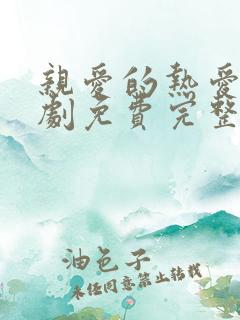 親愛的熱愛
劇免費完整
油色子
未任同意禁止转载